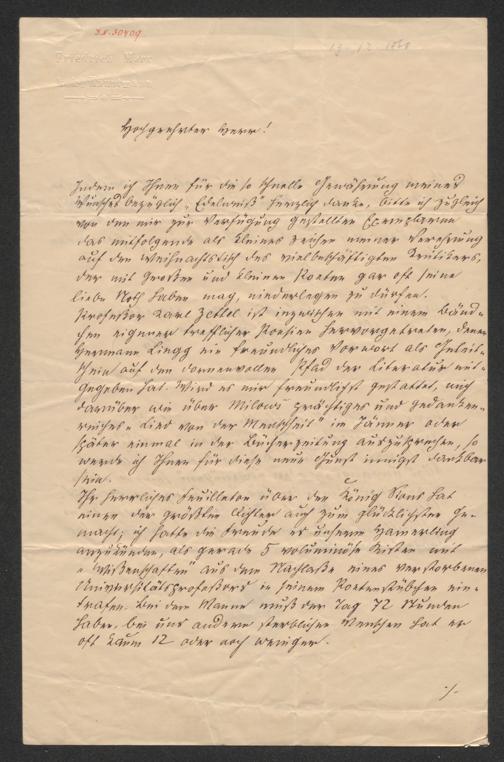 I.N. 30409
13. 12. 1868
Friedrich Marx
Hochgeehrter Herr!
Indem ich Ihnen für die so schnelle Gewährung meines
Wunsches bezüglich „Edelweiß" herzlich danke, bitte ich zugleich
von den mir zur Verfügung gestellten Exemplaren
das mitfolgende als kleines Zeichen meiner Verehrung
auf den Weihnachtstisch des vielbeschäftigten Kritikers,
der mit großen und kleinen Poeten gar oft seine
liebe Noth haben mag, niederlegen zu dürfen.
Professor Karl Zettel ist inzwischen mit einem Bänd-
chen eigener trefflicher Poesien hervorgetreten, denen
Hermann Lingg ein freundliches Vorwort als Geleit-
schein auf den dornenvollen Pfad der Literatur mit-
gegeben hat. Wird es mir freundlichst gestattet, mich
darüber wie über Milows prächtiges und gedanken-
reiches „Lied von der Menschheit" im Jänner oder
später einmal in der Bücherzeitung auszusprechen, so
werde ich Ihnen für diese neue Gunst innigst dankbar
sein.
Ihr herrliches Feuilleton über den König Sions hat
einen der größten Dichter auch zum glücklichsten ge-
macht; ich hatte die Freude es unserm Hamerling
anzukünden, als gerade 5 voluminöse Kisten mit
„Wissenschaften" aus dem Nachlaße eines verstorbenen
Universitätsprofeßors in seinem Poetenstübchen ein-
trafen. Bei dem Manne muß der Tag 72 Stunden
haben, bei uns andern sterblichen Menschen hat er
oft kaum 12 oder noch weniger.
./.